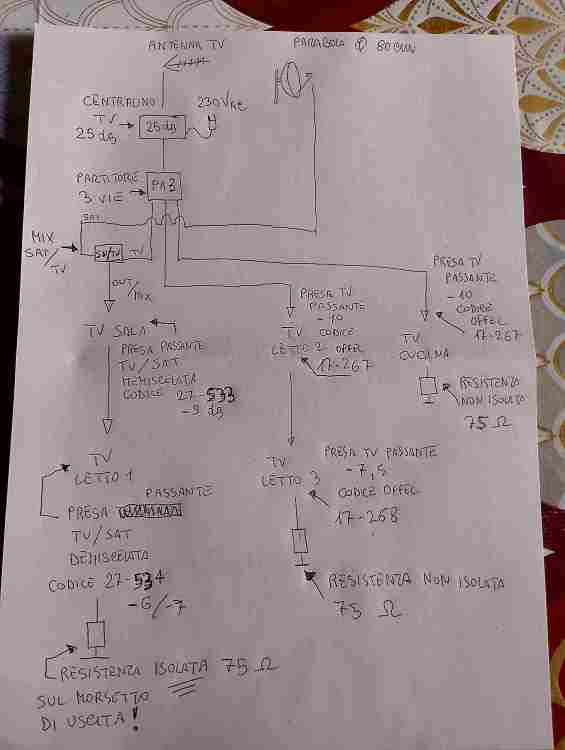 ANTENNA TV
PARABOLA Φ 80 CM
CENTRALINO
TV
25 dB
25 dB
230 Vac
PARTITORE
3 VIE
PA3
SAT
MIX
SAT/
TV
SAT/TV
TV
OUT/
MIX
PRESA TV
PASSANTE
- 10
CODICE
OFFEL
17-267
TV
CUCINA
RESISTENZA
NON ISOLATA
75 Ω
PRESA TV
PASSANTE
- 10
CODICE
OFFEL
17-267
TV
LETTO 2
TV SALA
PRESA PASSANTE
TV/SAT
DEMISCELATA
CODICE 27-533
-9 dB
TV
LETTO 1
PASSANTE
PRESA
TV/SAT
DEMISCELATA
CODICE 27-534
-6/-7
RESISTENZA ISOLATA 75 Ω
SUL MORSETTO
DI USCITA!
PRESA TV PASSANTE
- 7,5
CODICE OFFEL
17-268
TV
LETTO 3
RESISTENZA NON ISOLATA
75 Ω